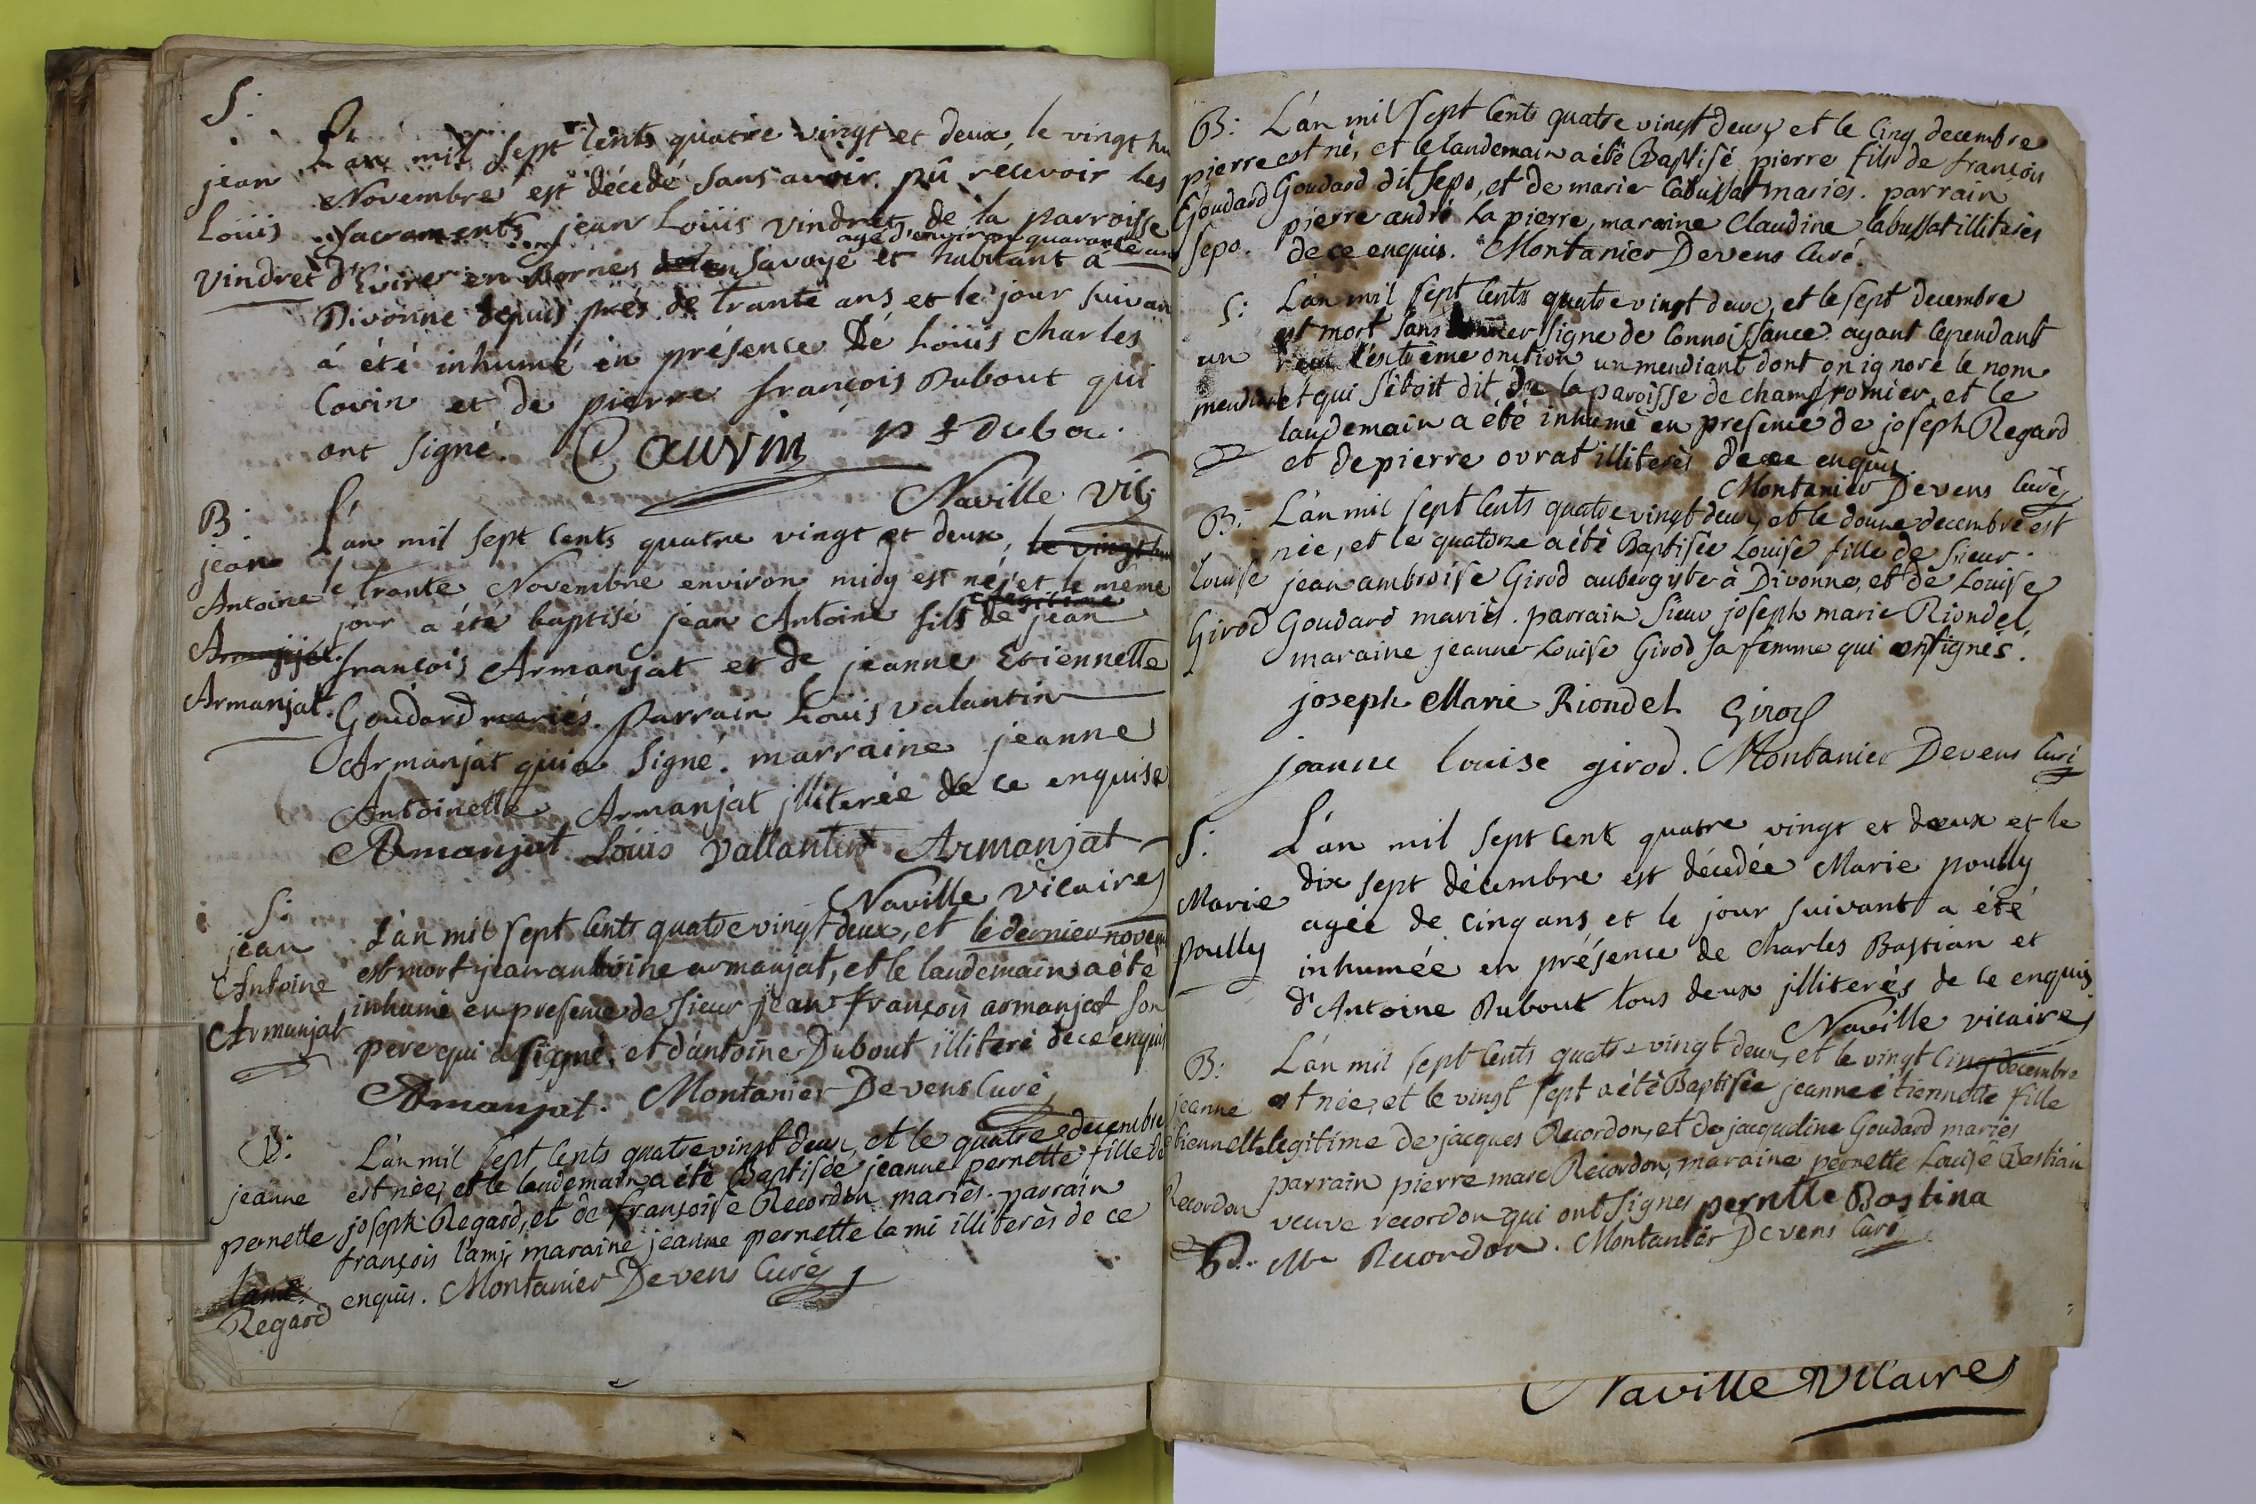 S:
jean
Louis
Vindret
L'an mil sept cents quatre vingt et deux, le vingt hu
Novembre est décédé sans avoir pû recevoir les
sacraments jean Louis vindret de la parroisse
agé d'environ quarante ans
d'Evires en Bornes en Savoye et habitant à
Divonne depuis près de trante ans et le jour suivan
à été inhumé en présence de Louis charles
Covin et de pierre françois Dubout qui
ont signé. Cauvin p f Dubou
Naville Vic
B:
jean
Antoine
Armanjat
L'an mil sept cents quatre vingt et deux, le vingt hu
le trante Novembre environ midy est né, et le même
jour a été baptisé jean Antoine fils legitime de jean
françois Armanjat et de jeanne Etiennette
Goudard mariés. parrain Louis valantin
Armanjat qui a signé. marraine jeanne
Antoinette Armanjat jlliterée de ce enquise
Armanjat Louis vallantin Armanjat
Naville vicaire
S:
jean
Antoine
Armanjat
L'an mil sept cents quatre vingt deux, et le dernier novem
est mort jean antoine armanjat, et le landemain a été
inhumé en presence de sieur jean françois armanjat son
pere qui a signé, et d'antoine Dubout illiteré de ce enquis
Armanjat. Montanier Devens Curé
B:
jeanne
pernette
lamé
Regard
L'an mil sept cents quatre vingt deux, et le quatre decembre
est née, et le landemain a été Baptisée jeanne pernette fille de
joseph Regard, et de françoise Recordon mariés. parrain
françois l'ami, maraine jeanne pernette lami illiterés de ce
enquis. Montanier Devens Curé
B:
pierre
Goudard
sepo.
L'an mil sept cents quatre vingt deux et le cinq decembre
est né, et le landemain a été Baptisé pierre fils de françois
Goudard dit sepo, et de marie Cabussat mariés. parrain
pierre andré La pierre, maraine Claudine labussat illiterés
de ce enquis. Montanier Devens Curé.
S:
un
mendiant
L'an mil sept cents quatre vingt deux, et le sept decembre
est mort sans donner signe de connoissance ayant cependant
reçu l'extrême onction un mendiant dont on ignore le nom
et qui s'étoit dit de la paroisse de champfromier, et le
landemain a été inhumé en presence de joseph Regard
et de pierre ovrat illiterés de ce enquis.
Montanier Devens Curé
B:
Louise
Girod
L'an mil sept cents quatre vingt deux, et le douze decembre est
née, et le quatorze a été Baptisée Louise fille de sieur
jean ambroise Girod aubergyste à Divonne, et de Louise
Goudard mariés. parrain sieur joseph marie Riondel,
maraine jeanne Louise Girod sa femme qui ont signés.
joseph Marie Riondel Girod
jeanne louise girod. Montanier Devens Curé
S:
Marie
poully
L'an mil sept cent quatre vingt et deux et le
dix sept décembre est décédée Marie poully
agée de cinq ans et le jour suivant a été
inhumée en présence de charles Bastian et
d'Antoine Dubout tous deux jlliterés de ce enquis
Naville vicaire
B:
jeanne
Etiennette
Recordon
L'an mil sept cents quatre vingt deux, et le vingt cinq decembre
est née, et le vingt sept a été Baptisée jeanne étiennette fille
legitime de jacques Recordon, et de jacqueline Goudard mariés
parrain pierre marc Recordon, maraine pernette Louise Bastian
veuve recordon qui ont signés pernette Bastina
Mc Recordon. Montanier Devens Curé
Naville Vicaire